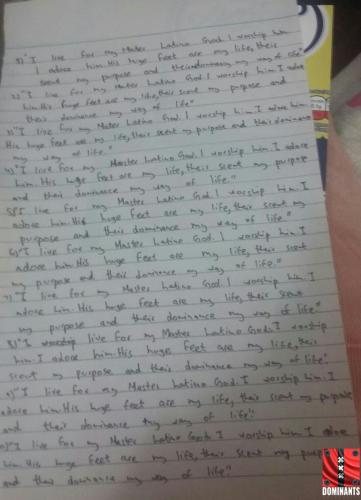 1) "I live for my Master Latino God. I worship him
I adore him. His huge feet are my life, their
scent my purpose and their dominance my way of life"
2) "I live for my Master Latino God. I worship him. I adore
him. His huge feet are my life, their scent my purpose and
their dominance my way of life"
3) "I live for my Master Latino God. I worship him. I adore him.
His huge feet are my life, their scent my purpose and their dominance
my way of life."
4) "I live for my Master Latino God. I worship him. I adore
him. His huge feet are my life, their scent my purpose
and their dominance my way of life."
5) "I live for my Master Latino God. I worship him. I
adore him. His huge feet are my life, their scent my
purpose and their dominance my way of life"
6) "I live for my Master Latino God. I worship him. I
adore him. His huge feet are my life, their scent
my purpose and their dominance my way of life."
7) "I live for my Master Latino God. I worship him. I
adore him. His huge feet are my life, their scent
my purpose and their dominance my way of life"
8) "I live for my Master Latino God. I worship
him I adore him. His huge feet are my life, their
scent my purpose and their dominance my way of life"
9) "I live for my Master Latino God. I worship him. I
adore him. His huge feet are my life, their scent my purpose
and their dominance my way of life".
10) "I live for my Master Latino God. I worship him. I adore
him. His huge feet are my life, their scent my purpose
and their dominance my way of life."
DOMINANTS